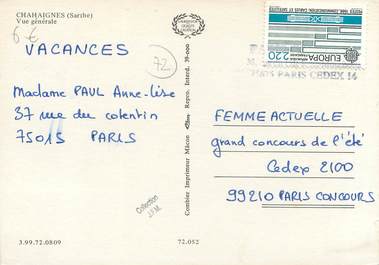 CHAHAIGNES (Sarthe)
Vue générale
6 €
VACANCES
72
Madame PAUL Anne-Lise
37 rue du cotentin
75015 PARIS
Combier Imprimeur Mâcon
Repro. Interd. 39-000
Collection
J.F.M.
EUROPA
2,20
PARIS CEDEX 16
FEMME ACTUELLE
grand concours de l'été
Cedex 2100
99210 PARIS CONCOURS
3.99.72.0809
72.052